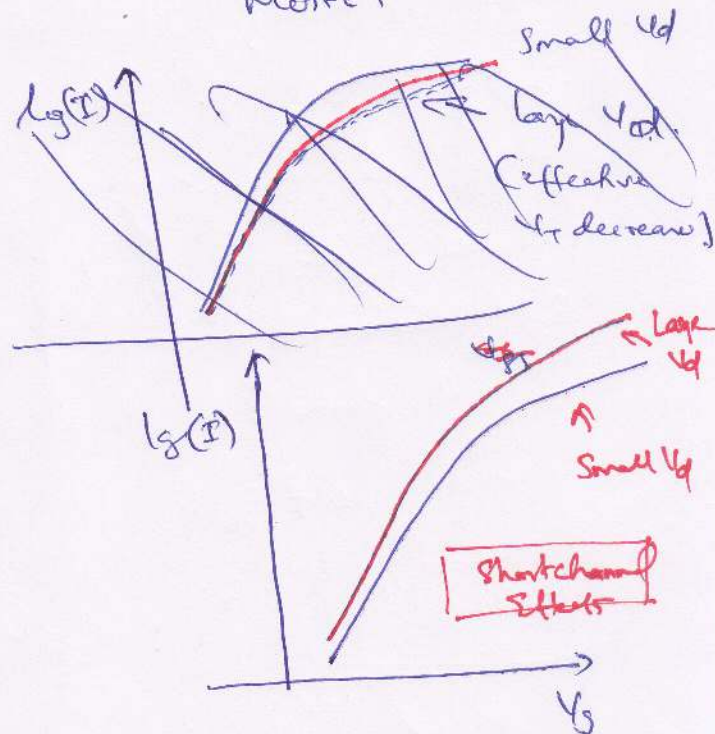 log(I)
Small Vd
large Vd.
(effective
VT decrease]
lg(I)
Large
Vd
Small Vd
Short channel
Effects
Vg